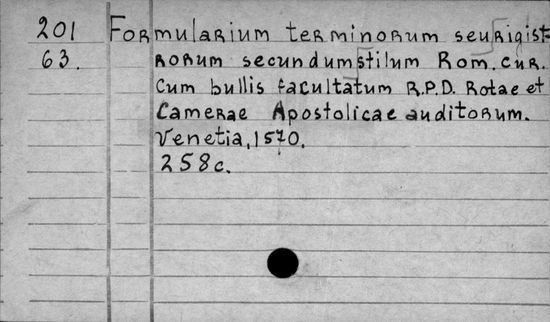 201 Formularium terminorum seu Rigist-
63. rorum secundum stilum Rom. cur.
Cum bullis facultatum R.P.D. Rotae et
Camerae Apostolicae auditorum.
Venetia, 1570.
258c.